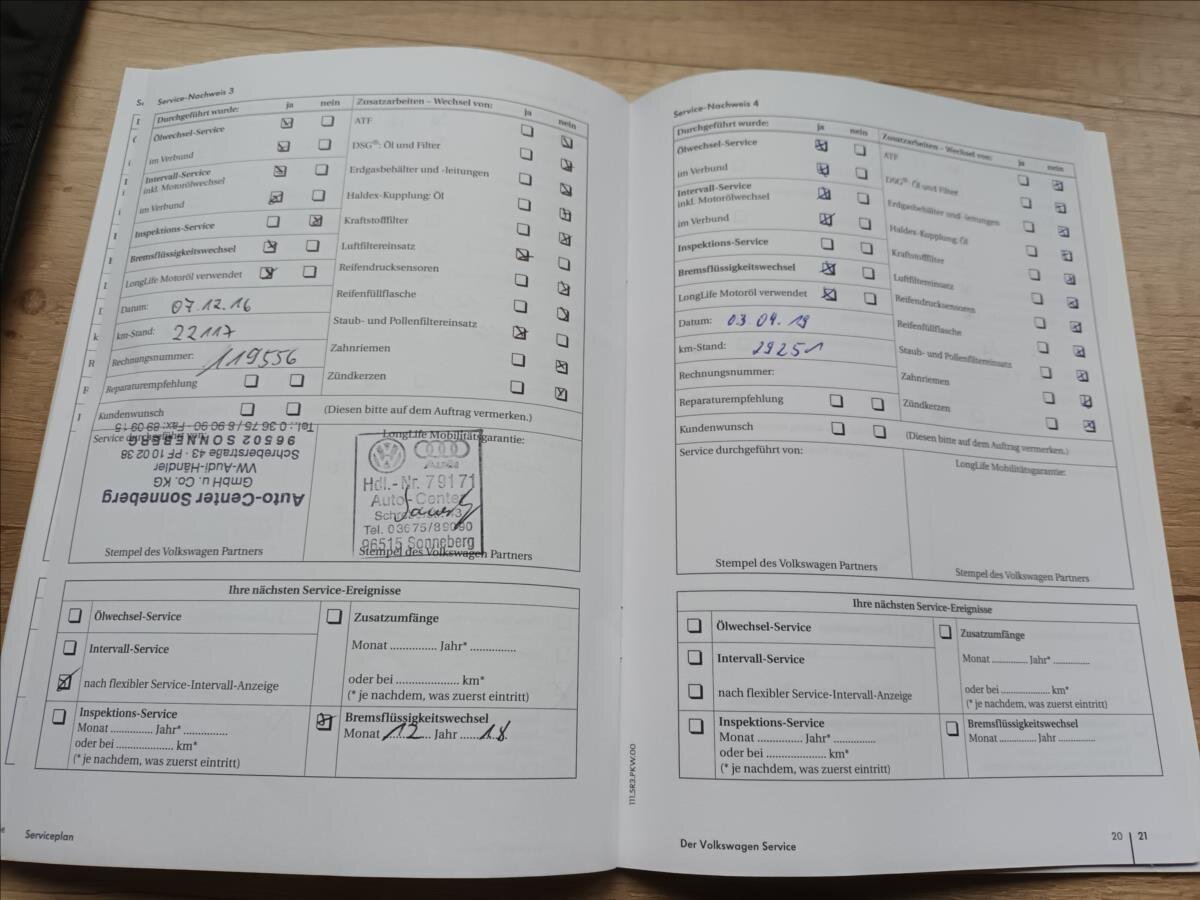 Service-Nachweis 3
Durchgeführt wurde: ja nein
Ölwechsel-Service
im Verbund
Intervall-Service
inkl. Motorölwechsel
im Verbund
Inspektions-Service
Bremsflüssigkeitswechsel
LongLife Motoröl verwendet
Datum: 07.12.16
km-Stand: 22117
Rechnungsnummer: 119556
Reparaturempfehlung
Kundenwunsch
Zusatzarbeiten – Wechsel von: ja nein
ATF
DSG®: Öl und Filter
Erdgasbehälter und -leitungen
Haldex-Kupplung: Öl
Kraftstofffilter
Luftfiltereinsatz
Reifendrucksensoren
Reifenfüllflasche
Staub- und Pollenfiltereinsatz
Zahnriemen
Zündkerzen
(Diesen bitte auf dem Auftrag vermerken.)
Service durchgeführt von:
Auto-Center Sonneberg
GmbH u. Co. KG
VW-Audi-Händler
Schreberstraße 43 · PF 10 02 38
96502 SONNEBERG
Tel.: 0 36 75 / 8 90 90 · Fax: 89 09 15
Stempel des Volkswagen Partners
LongLife Mobilitätsgarantie:
Audi
Hdl.-Nr. 79171
Auto-Center
Tel. 03675/89090
96515 Sonneberg
Stempel des Volkswagen Partners
Ihre nächsten Service-Ereignisse
Ölwechsel-Service
Intervall-Service
nach flexibler Service-Intervall-Anzeige
Inspektions-Service
Monat .............. Jahr* ..............
oder bei .................... km*
(* je nachdem, was zuerst eintritt)
Zusatzumfänge
Monat .............. Jahr* ..............
oder bei .................... km*
(* je nachdem, was zuerst eintritt)
Bremsflüssigkeitswechsel
Monat 12 Jahr 18
Serviceplan
Service-Nachweis 4
Durchgeführt wurde: ja nein
Ölwechsel-Service
im Verbund
Intervall-Service
inkl. Motorölwechsel
im Verbund
Inspektions-Service
Bremsflüssigkeitswechsel
LongLife Motoröl verwendet
Datum: 03.04.19
km-Stand: 29251
Rechnungsnummer:
Reparaturempfehlung
Kundenwunsch
Zusatzarbeiten – Wechsel von: ja nein
ATF
DSG®: Öl und Filter
Erdgasbehälter und -leitungen
Haldex-Kupplung: Öl
Kraftstofffilter
Luftfiltereinsatz
Reifendrucksensoren
Reifenfüllflasche
Staub- und Pollenfiltereinsatz
Zahnriemen
Zündkerzen
(Diesen bitte auf dem Auftrag vermerken.)
Service durchgeführt von:
Stempel des Volkswagen Partners
LongLife Mobilitätsgarantie:
Stempel des Volkswagen Partners
Ihre nächsten Service-Ereignisse
Ölwechsel-Service
Intervall-Service
nach flexibler Service-Intervall-Anzeige
Inspektions-Service
Monat .............. Jahr* ..............
oder bei .................... km*
(* je nachdem, was zuerst eintritt)
Zusatzumfänge
Monat .............. Jahr* ..............
oder bei .................... km*
(* je nachdem, was zuerst eintritt)
Bremsflüssigkeitswechsel
Monat .............. Jahr ..............
111.5R3.PKW.00
Der Volkswagen Service
20 21